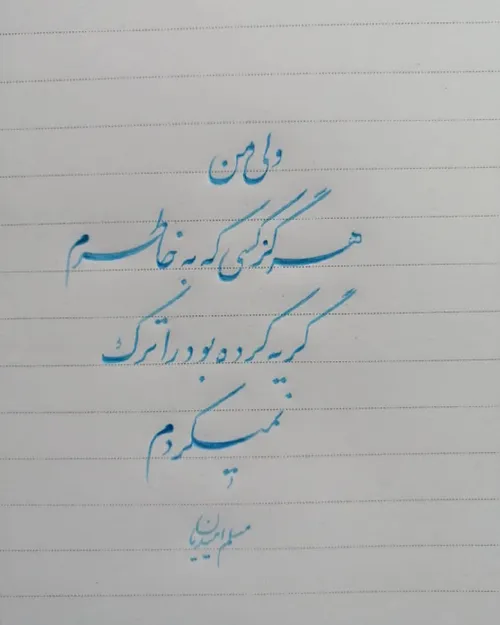 ولی من
هرگز کسی که به خاطرم
گریه کرده بود را ترک
نمیکردم
مسلم امیدیان